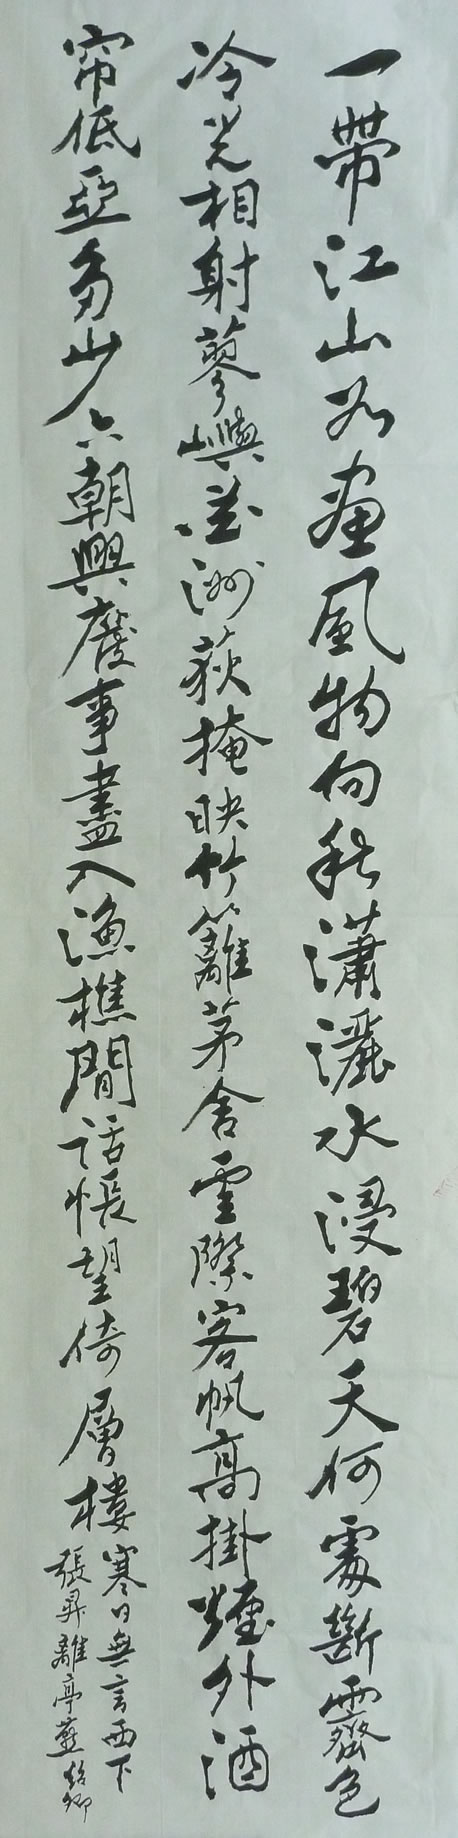 一帶江山如畫風物向秋瀟灑水浸碧天何處斷霽色
冷光相射蓼嶼荻洲荻掩映竹籬茅舍雲際客帆高掛煙外酒
帘低亞多少六朝興廢事盡入漁樵閒話悵望倚層樓
寒日無言西下
張昇離亭燕